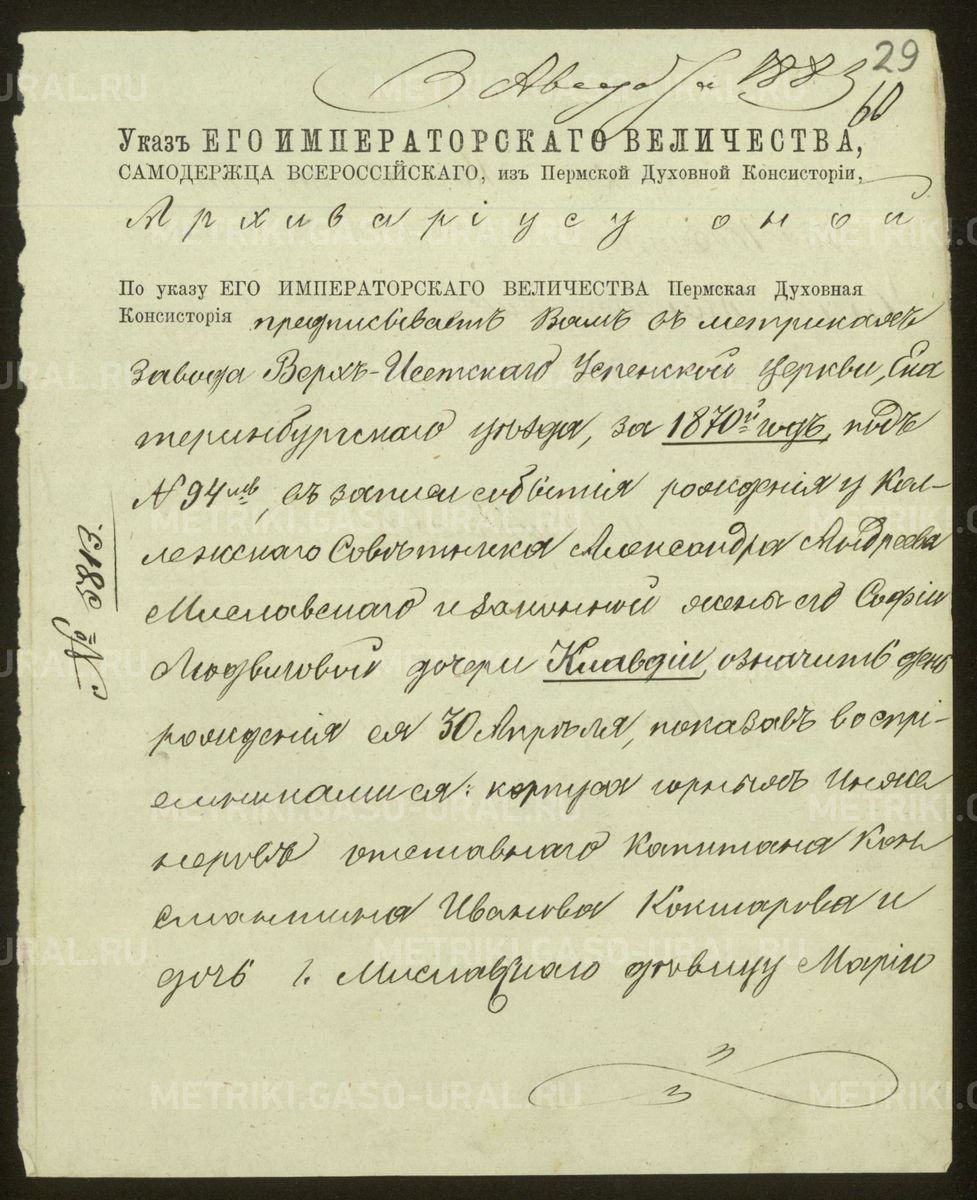 29
3 Августа 1883
60
Указъ ЕГО ИМПЕРАТОРСКАГО ВЕЛИЧЕСТВА,
САМОДЕРЖЦА ВСЕРОССІЙСКАГО, изъ Пермской Духовной Консисторіи,
Архиваріусу оной
По указу ЕГО ИМПЕРАТОРСКАГО ВЕЛИЧЕСТВА Пермская Духовная
Консисторія предписываетъ Вамъ въ метрикахъ
завода Верхъ-Исетскаго Успенской церкви, Ека
теринбургскаго уѣзда, за 1870й годъ, подъ
№ 94мъ, въ записи событія рожденія у Кол-
лежскаго Совѣтника Александра Андреева
Миславскаго и законной жены его Софіи
Людвиговой дочери Клавдіи, означить день
рожденія ея 30 Апрѣля, показавъ воспрі-
емниками ея: корпуса горныхъ инже
неровъ отставнаго Капитана Кон
стантина Иванова Кокшарова и
дочь г. Миславскаго дѣвицу Марію
№ 5813.
METRIKI.GASO-URAL.RU